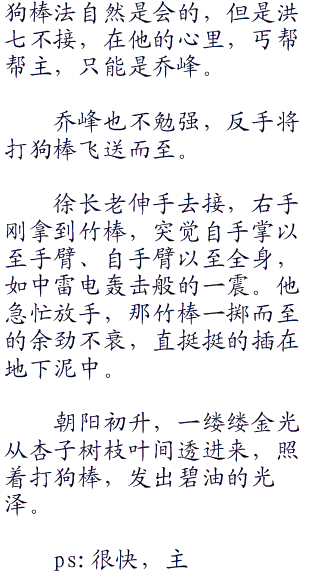 狗棒法自然是会的，但是洪
七不接，在他的心里，丐帮
帮主，只能是乔峰。
乔峰也不勉强，反手将
打狗棒飞送而至。
徐长老伸手去接，右手
刚拿到竹棒，突觉自手掌以
至手臂、自手臂以至全身，
如中雷电轰击般的一震。他
急忙放手，那竹棒一掷而至
的余劲不衰，直挺挺的插在
地下泥中。
朝阳初升，一缕缕金光
从杏子树枝叶间透进来，照
着打狗棒，发出碧油的光
泽。
ps:很快，主